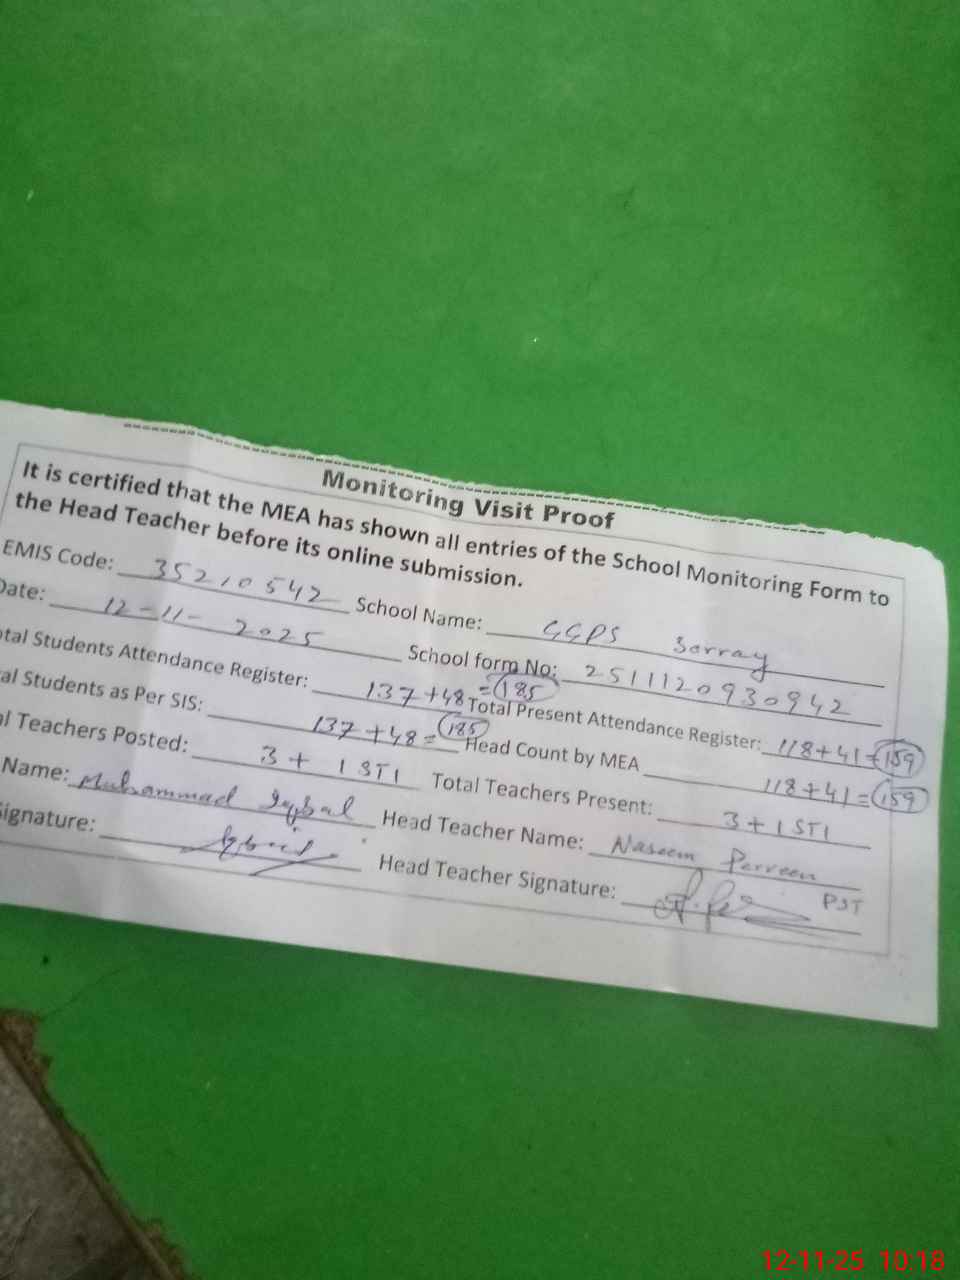 Monitoring Visit Proof
It is certified that the MEA has shown all entries of the School Monitoring Form to
the Head Teacher before its online submission.
EMIS Code: 35210542 School Name: GGPS Sorray
Date: 12-11-2025 School form No: 2511120930942
otal Students Attendance Register: 137+48=185 Total Present Attendance Register: 118+41=159
al Students as Per SIS: 137+48=185 Head Count by MEA 118+41=159
al Teachers Posted: 3+1STI Total Teachers Present: 3+1STI
Name: Muhammad Iqbal Head Teacher Name: Naseem Perveen
ignature: Head Teacher Signature: PST
12-11-25 10:18